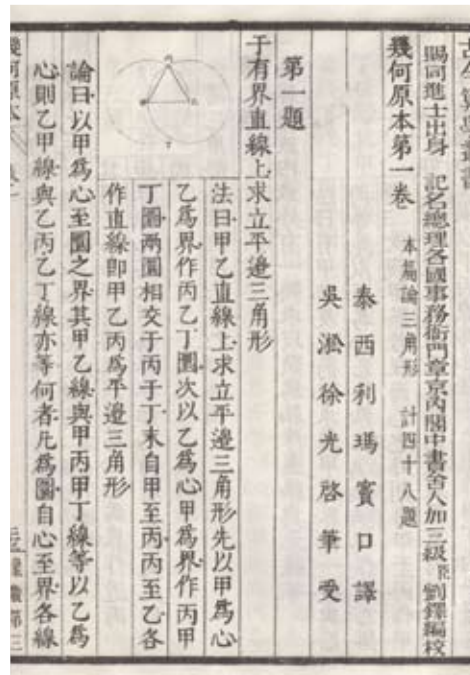 古今算學叢書
賜同進士出身 記名總理各國事務衙門章京內閣中書舍人加三級臣劉鐸編校
幾何原本第一卷 本篇論三角形 計四十八題
泰西利瑪竇口譯
吳淞徐光啓筆受
第一題
于有界直線上求立平邊三角形
法曰甲乙直線上求立平邊三角形先以甲爲心
乙爲界作丙乙丁圜次以乙爲心甲爲界作丙甲
丁圜兩圜相交于丙于丁末自甲至丙丙至乙各
作直線即甲乙丙爲平邊三角形
論曰以甲爲心至圜之界其甲乙線與甲丙甲丁線等以乙爲
心則乙甲線與乙丙乙丁線亦等何者凡爲圜自心至界各線
幾何原本